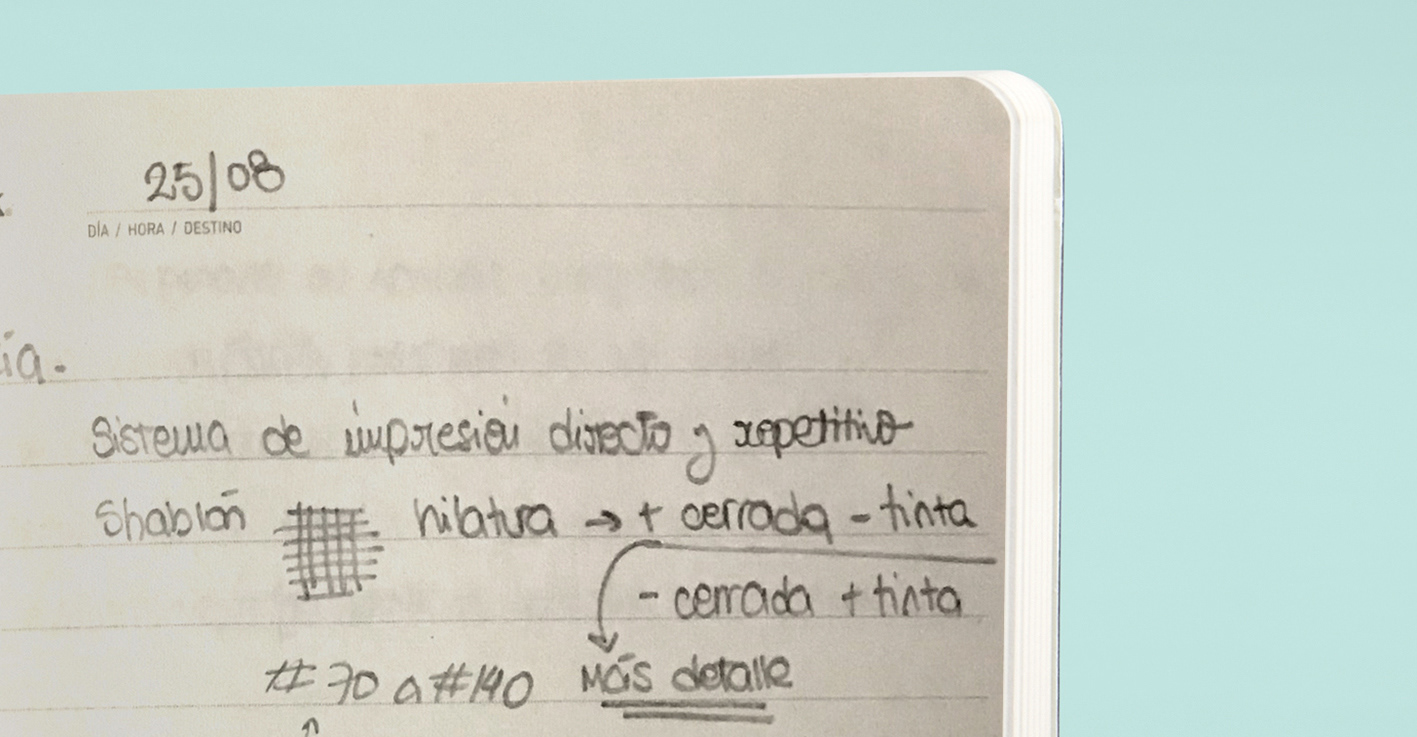 25/08
DÍA / HORA / DESTINO
ía.
Sistema de impresión directo y repetitivo
Shablón hilatura → + cerrada - tinta
- cerrada + tinta
#70 a #140 Más detalle